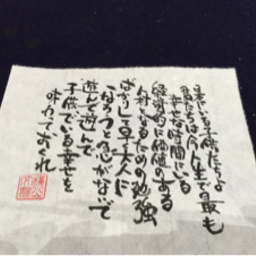 日本にいる子供たちよ
君たちは今人生で最も
幸せな時間にいる
経済的に価値のある
人材となるための勉強
ばかりして早く大人に
なろうと急がないで
遊んで遊んで
子供でいる幸せを
味わっておくれ